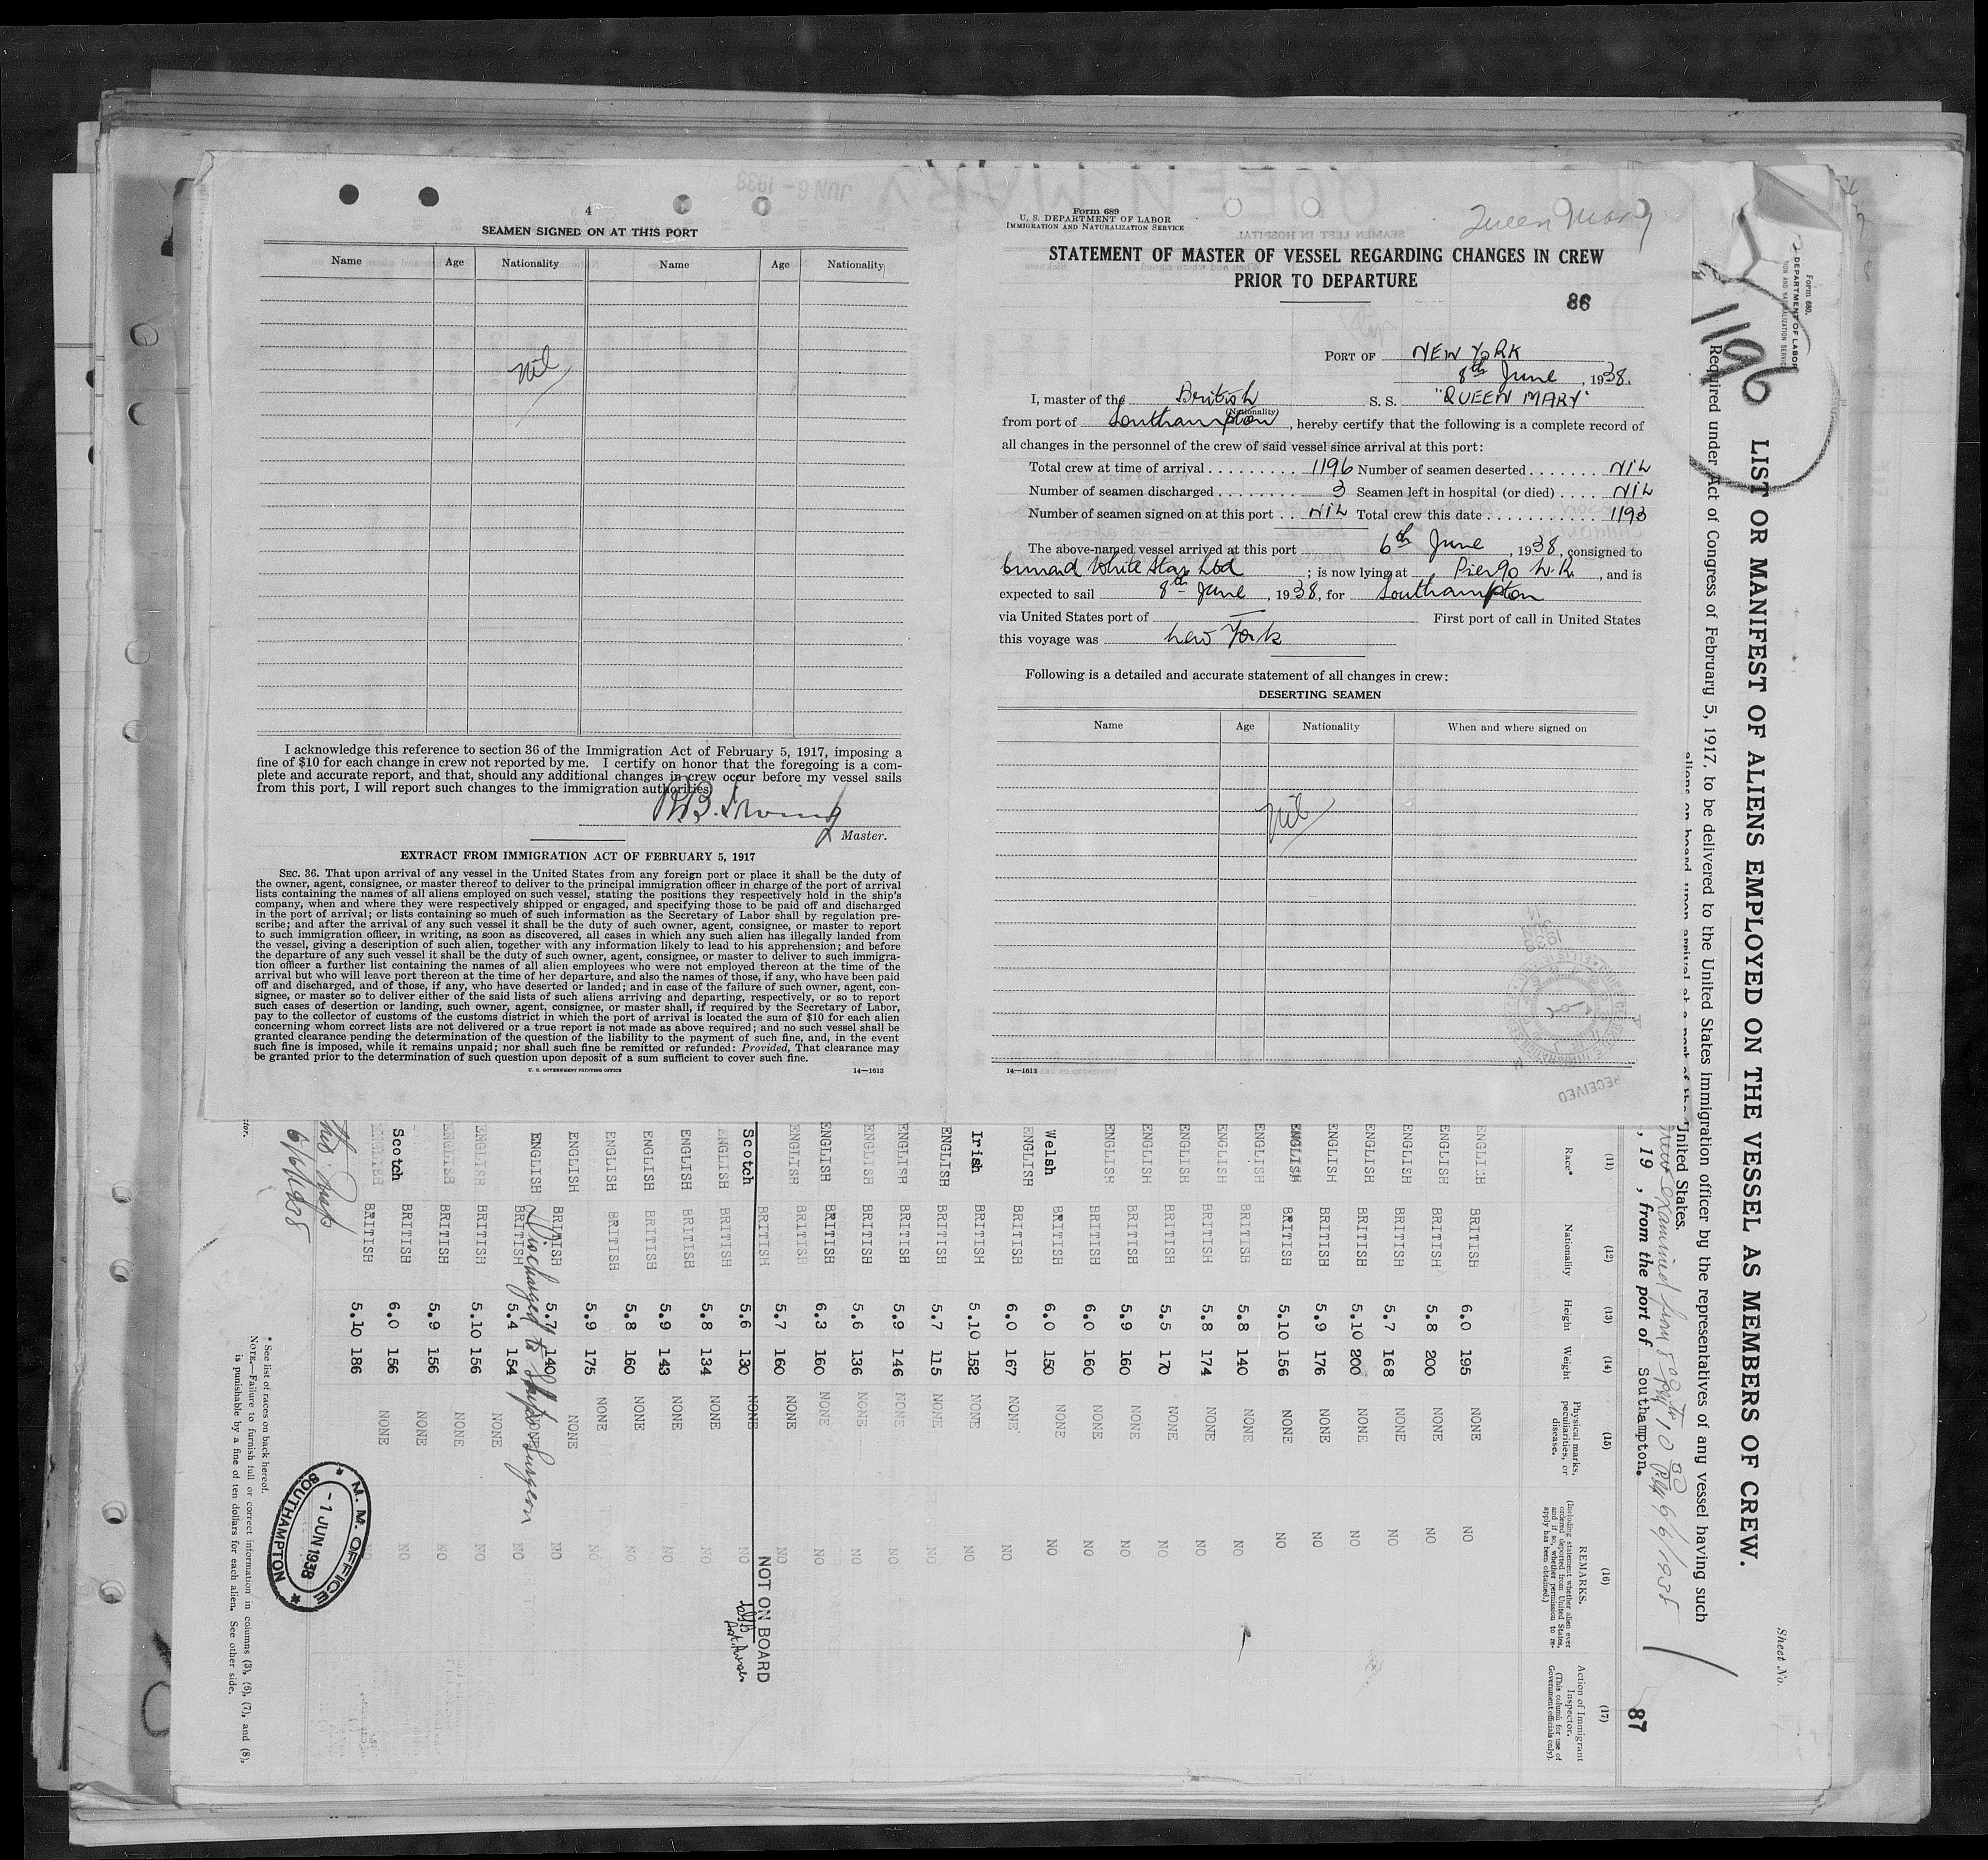 4
SEAMEN SIGNED ON AT THIS PORT
Name Age Nationality Name Age Nationality
Nil
I acknowledge this reference to section 36 of the Immigration Act of February 5, 1917, imposing a
fine of $10 for each change in crew not reported by me. I certify on honor that the foregoing is a com-
plete and accurate report, and that, should any additional changes in crew occur before my vessel sails
from this port, I will report such changes to the immigration authorities.
Irving
Master.
EXTRACT FROM IMMIGRATION ACT OF FEBRUARY 5, 1917
SEC. 36. That upon arrival of any vessel in the United States from any foreign port or place it shall be the duty of
the owner, agent, consignee, or master thereof to deliver to the principal immigration officer in charge of the port of arrival
lists containing the names of all aliens employed on such vessel, stating the positions they respectively hold in the ship's
company, when and where they were respectively shipped or engaged, and specifying those to be paid off and discharged
in the port of arrival; or lists containing so much of such information as the Secretary of Labor shall by regulation pre-
scribe; and after the arrival of any such vessel it shall be the duty of such owner, agent, consignee, or master to report
to such immigration officer, in writing, as soon as discovered, all cases in which any such alien has illegally landed from
the vessel, giving a description of such alien, together with any information likely to lead to his apprehension; and before
the departure of any such vessel it shall be the duty of such owner, agent, consignee, or master to deliver to such immigra-
tion officer a further list containing the names of all alien employees who were not employed thereon at the time of the
arrival but who will leave port thereon at the time of her departure, and also the names of those, if any, who have been paid
off and discharged, and of those, if any, who have deserted or landed; and in case of the failure of such owner, agent, con-
signee, or master so to deliver either of the said lists of such aliens arriving and departing, respectively, or so to report
such cases of desertion or landing, such owner, agent, consignee, or master shall, if required by the Secretary of Labor,
pay to the collector of customs of the customs district in which the port of arrival is located the sum of $10 for each alien
concerning whom correct lists are not delivered or a true report is not made as above required; and no such vessel shall be
granted clearance pending the determination of the question of the liability to the payment of such fine, and, in the event
such fine is imposed, while it remains unpaid; nor shall such fine be remitted or refunded: Provided, That clearance may
be granted prior to the determination of such question upon deposit of a sum sufficient to cover such fine.
U. S. GOVERNMENT PRINTING OFFICE 14—1613
Form 689
U. S. DEPARTMENT OF LABOR
IMMIGRATION AND NATURALIZATION SERVICE
Queen Mary
STATEMENT OF MASTER OF VESSEL REGARDING CHANGES IN CREW
PRIOR TO DEPARTURE
86
PORT OF NEW YORK
8th June, 1938.
I, master of the British S. S. "QUEEN MARY"
(Nationality)
from port of Southampton, hereby certify that the following is a complete record of
all changes in the personnel of the crew of said vessel since arrival at this port:
Total crew at time of arrival 1196 Number of seamen deserted NIL
Number of seamen discharged 3 Seamen left in hospital (or died) NIL
Number of seamen signed on at this port NIL Total crew this date 1193
The above-named vessel arrived at this port 6th June, 1938, consigned to
Cunard White Star Ltd; is now lying at Pier 90 N.R., and is
expected to sail 8th June, 1938, for Southampton
via United States port of — First port of call in United States
this voyage was New York
Following is a detailed and accurate statement of all changes in crew:
DESERTING SEAMEN
Name Age Nationality When and where signed on
Nil
14—1613
RECEIVED
Form 680.
DEPARTMENT OF LABOR
1196
Sheet No.
LIST OR MANIFEST OF ALIENS EMPLOYED ON THE VESSEL AS MEMBERS OF CREW.
Required under Act of Congress of February 5, 1917, to be delivered to the United States immigration officer by the representatives of any vessel having such
aliens on board upon arrival at a port of the United States.
, 19 , from the port of Southampton.
87
(11) (12) (13) (14) (15) (16) (17)
Race* Nationality Height Weight Physical marks, peculiarities, or disease.
REMARKS.
(Including statement whether alien ever
ordered deported from United States,
and if so, whether permission to re-
apply has been obtained.)
Action of Immigrant
Inspector.
(This column for use of
Government officials only).
ENGLISH BRITISH 6.0 195 NONE NO
ENGLISH BRITISH 5.8 200 NONE NO
ENGLISH BRITISH 5.7 168 NONE NO
ENGLISH BRITISH 5.10 200 NONE NO
ENGLISH BRITISH 5.9 176 NONE NO
ENGLISH BRITISH 5.10 156 NONE NO
ENGLISH BRITISH 5.8 140 NONE NO
ENGLISH BRITISH 5.8 174 NONE NO
ENGLISH BRITISH 5.5 170 NONE NO
ENGLISH BRITISH 5.9 160 NONE NO
ENGLISH BRITISH 6.0 160 NONE NO
Welsh BRITISH 6.0 150 NONE NO
ENGLISH BRITISH 6.0 167 NONE NO
Irish BRITISH 5.10 152 NONE NO
ENGLISH BRITISH 5.7 115 NONE NO
ENGLISH BRITISH 5.9 146 NONE NO
ENGLISH BRITISH 5.6 136 NONE NO
ENGLISH BRITISH 6.3 160 NONE NO
ENGLISH BRITISH 5.7 160 NONE NO
Scotch BRITISH 5.6 130 NONE NO NOT ON BOARD
ENGLISH BRITISH 5.8 134 NONE NO
ENGLISH BRITISH 5.9 143 NONE NO
ENGLISH BRITISH 5.8 160 NONE NO
ENGLISH BRITISH 5.9 175 NONE NO
ENGLISH BRITISH 5.7 140 NONE NO
Discharged to Ships Surgeon
ENGLISH BRITISH 5.4 154 NONE NO
ENGLISH BRITISH 5.10 156 NONE NO
ENGLISH BRITISH 5.9 156 NONE NO
Scotch BRITISH 6.0 156 NONE NO
ENGLISH BRITISH 5.10 186 NONE NO
6/6/1938
M. M. OFFICE
- 1 JUN 1938
SOUTHAMPTON
* See list of races on back hereof.
NOTE.—Failure to furnish full or correct information in columns (3), (6), (7), and (8),
is punishable by a fine of ten dollars for each alien. See other side.